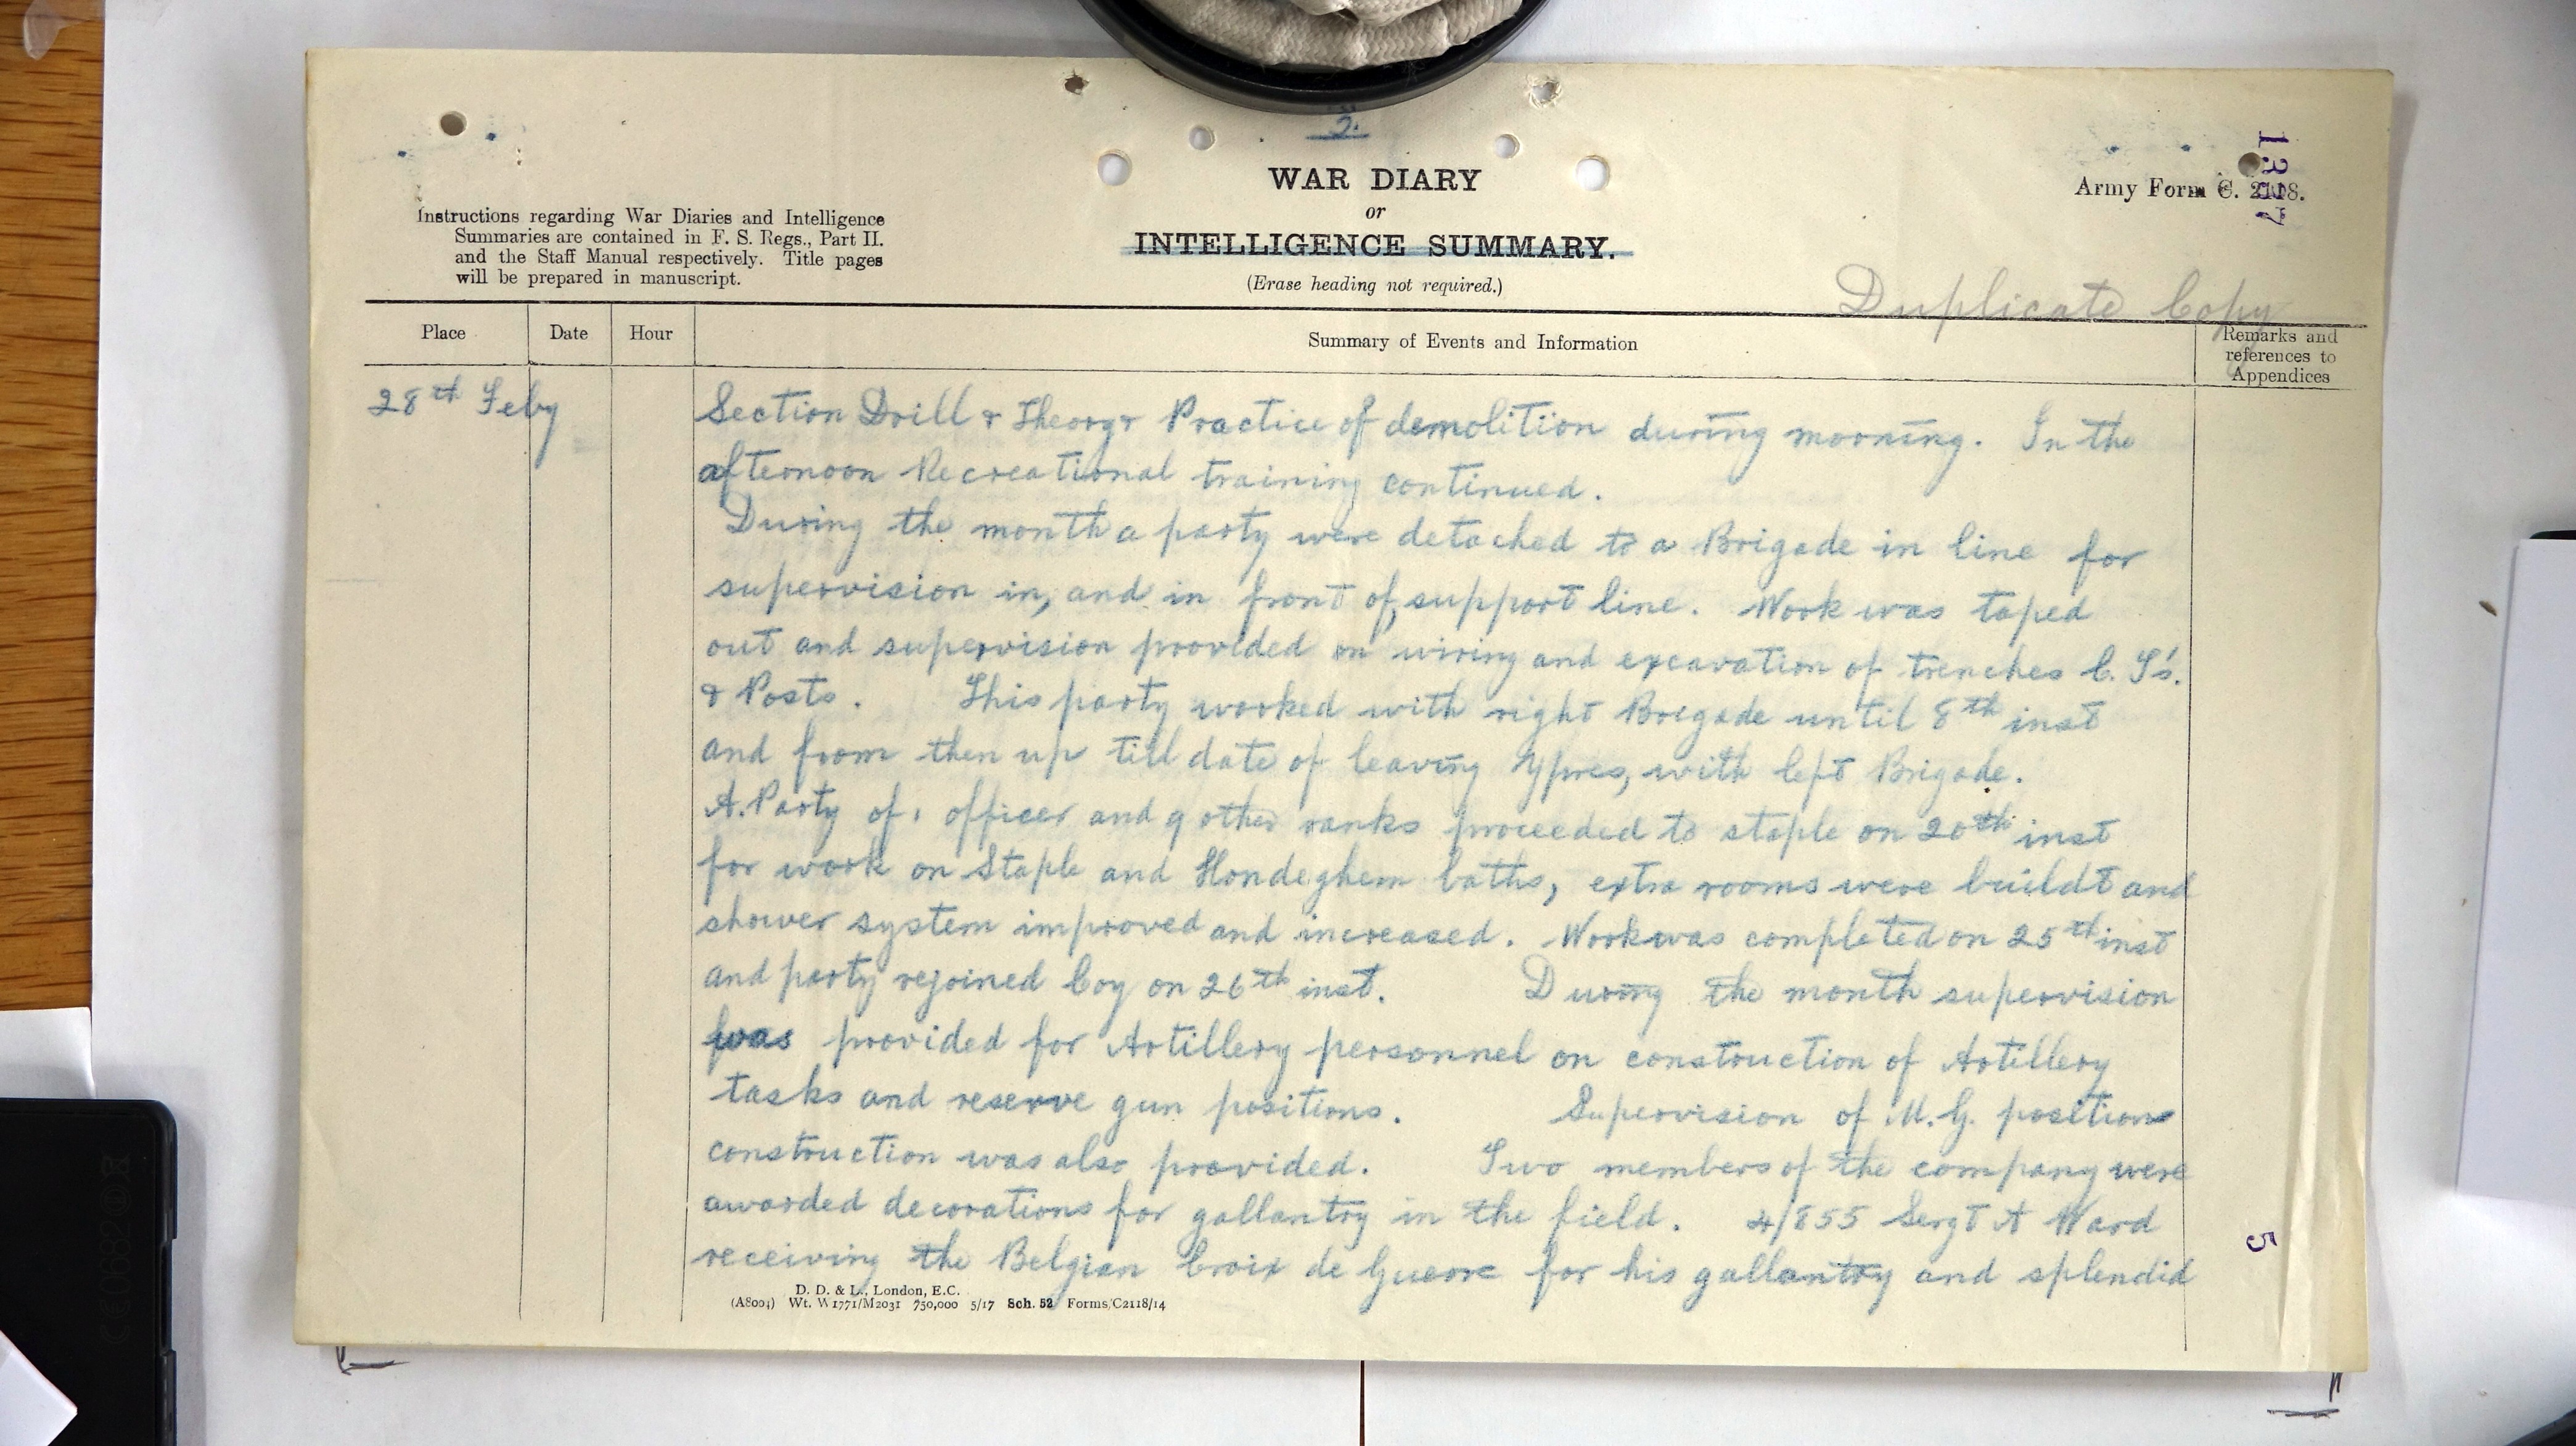 2.
WAR DIARY
or
INTELLIGENCE SUMMARY.
(Erase heading not required.)
Instructions regarding War Diaries and Intelligence
Summaries are contained in F. S. Regs., Part II.
and the Staff Manual respectively. Title pages
will be prepared in manuscript.
Army Form C. 2118.
Duplicate Copy
Place Date Hour Summary of Events and Information Remarks and
references to
Appendices
28th Feby Section Drill & Theory & Practice of demolition during morning. In the
afternoon Recreational training continued.
During the month a party were detached to a Brigade in line for
supervision in, and in front of, support line. Work was taped
out and supervision provided on wiring and excavation of trenches C. T's.
& Posts. This party worked with right Brigade until 8th inst
and from then up till date of leaving Ypres, with left Brigade.
A. Party of 1 officer and 9 other ranks proceeded to staple on 20th inst
for work on Staple and Hondeghem baths, extra rooms were buildt and
shower system improved and increased. Work was completed on 25th inst
and party rejoined Coy on 26th inst. During the month supervision
was provided for Artillery personnel on construction of Artillery
tasks and reserve gun positions. Supervision of M.G. positions
construction was also provided. Two members of the company were
awarded decorations for gallantry in the field. 4/855 Sergt A Ward
receiving the Belgian Croix de Guerre for his gallantry and splendid
5
D. D. & L., London, E.C.
(A8004) Wt. W1771/M2031 750,000 5/17 Sch. 52 Forms/C2118/14